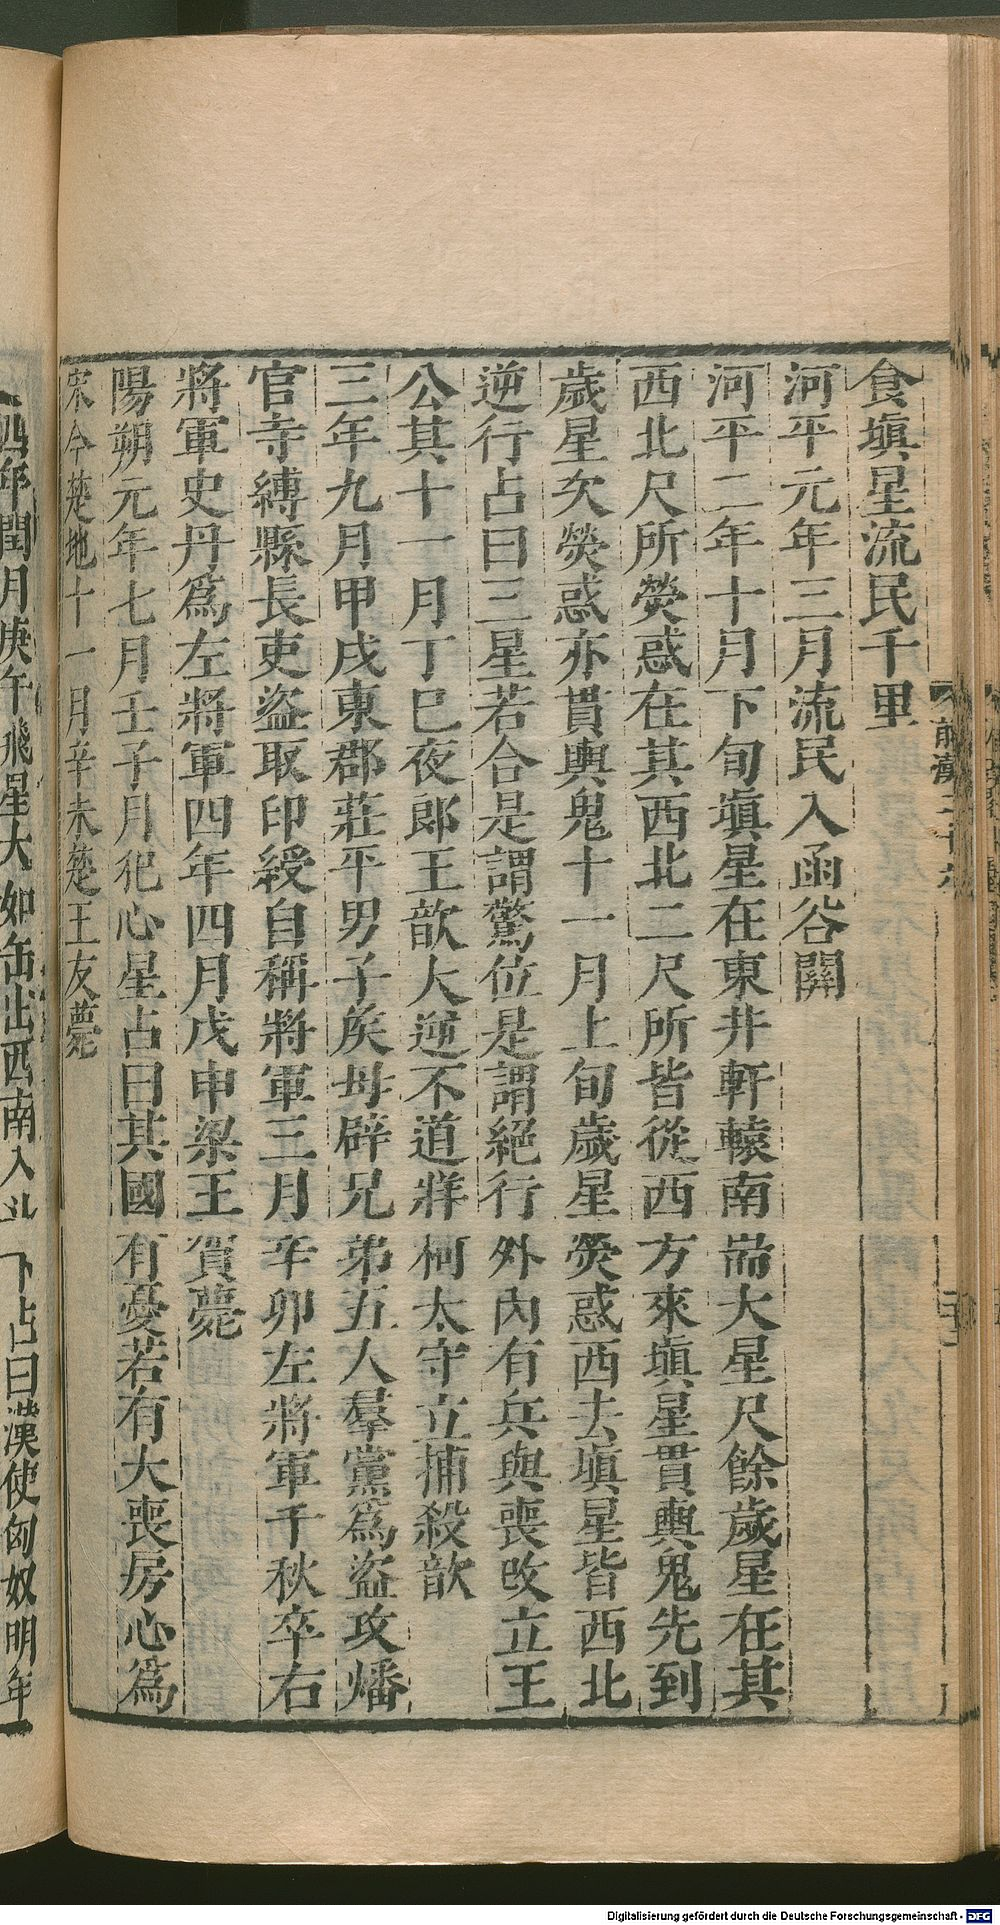 食塡星流民千里
河平元年三月流民入函谷關
河平二年十月下旬塡星在東井軒轅南耑大星尺餘歲星在其
西北尺所熒惑在其西北二尺所皆從西方來塡星貫輿鬼先到
歲星次熒惑亦貫輿鬼十一月上旬歲星熒惑西去塡星皆西北
逆行占曰三星若合是謂驚位是謂絕行外內有兵與喪改立王
公其十一月丁巳夜郎王歆大逆不道牂柯太守立捕殺歆
三年九月甲戌東郡莊平男子矦母辟兄弟五人羣黨爲盜攻燔
官寺縛縣長吏盜取印綬自稱將軍三月辛卯左將軍千秋卒右
將軍史丹爲左將軍四年四月戊申梁王賀薨
陽朔元年七月壬子月犯心星占曰其國有憂若有大喪房心爲
宋今楚地十一月辛未楚王友薨
四年閏月庚午飛星大如缶出西南入斗下占曰漢使匈奴明年
前漢二十六
Digitalisierung gefördert durch die Deutsche Forschungsgemeinschaft - DFG